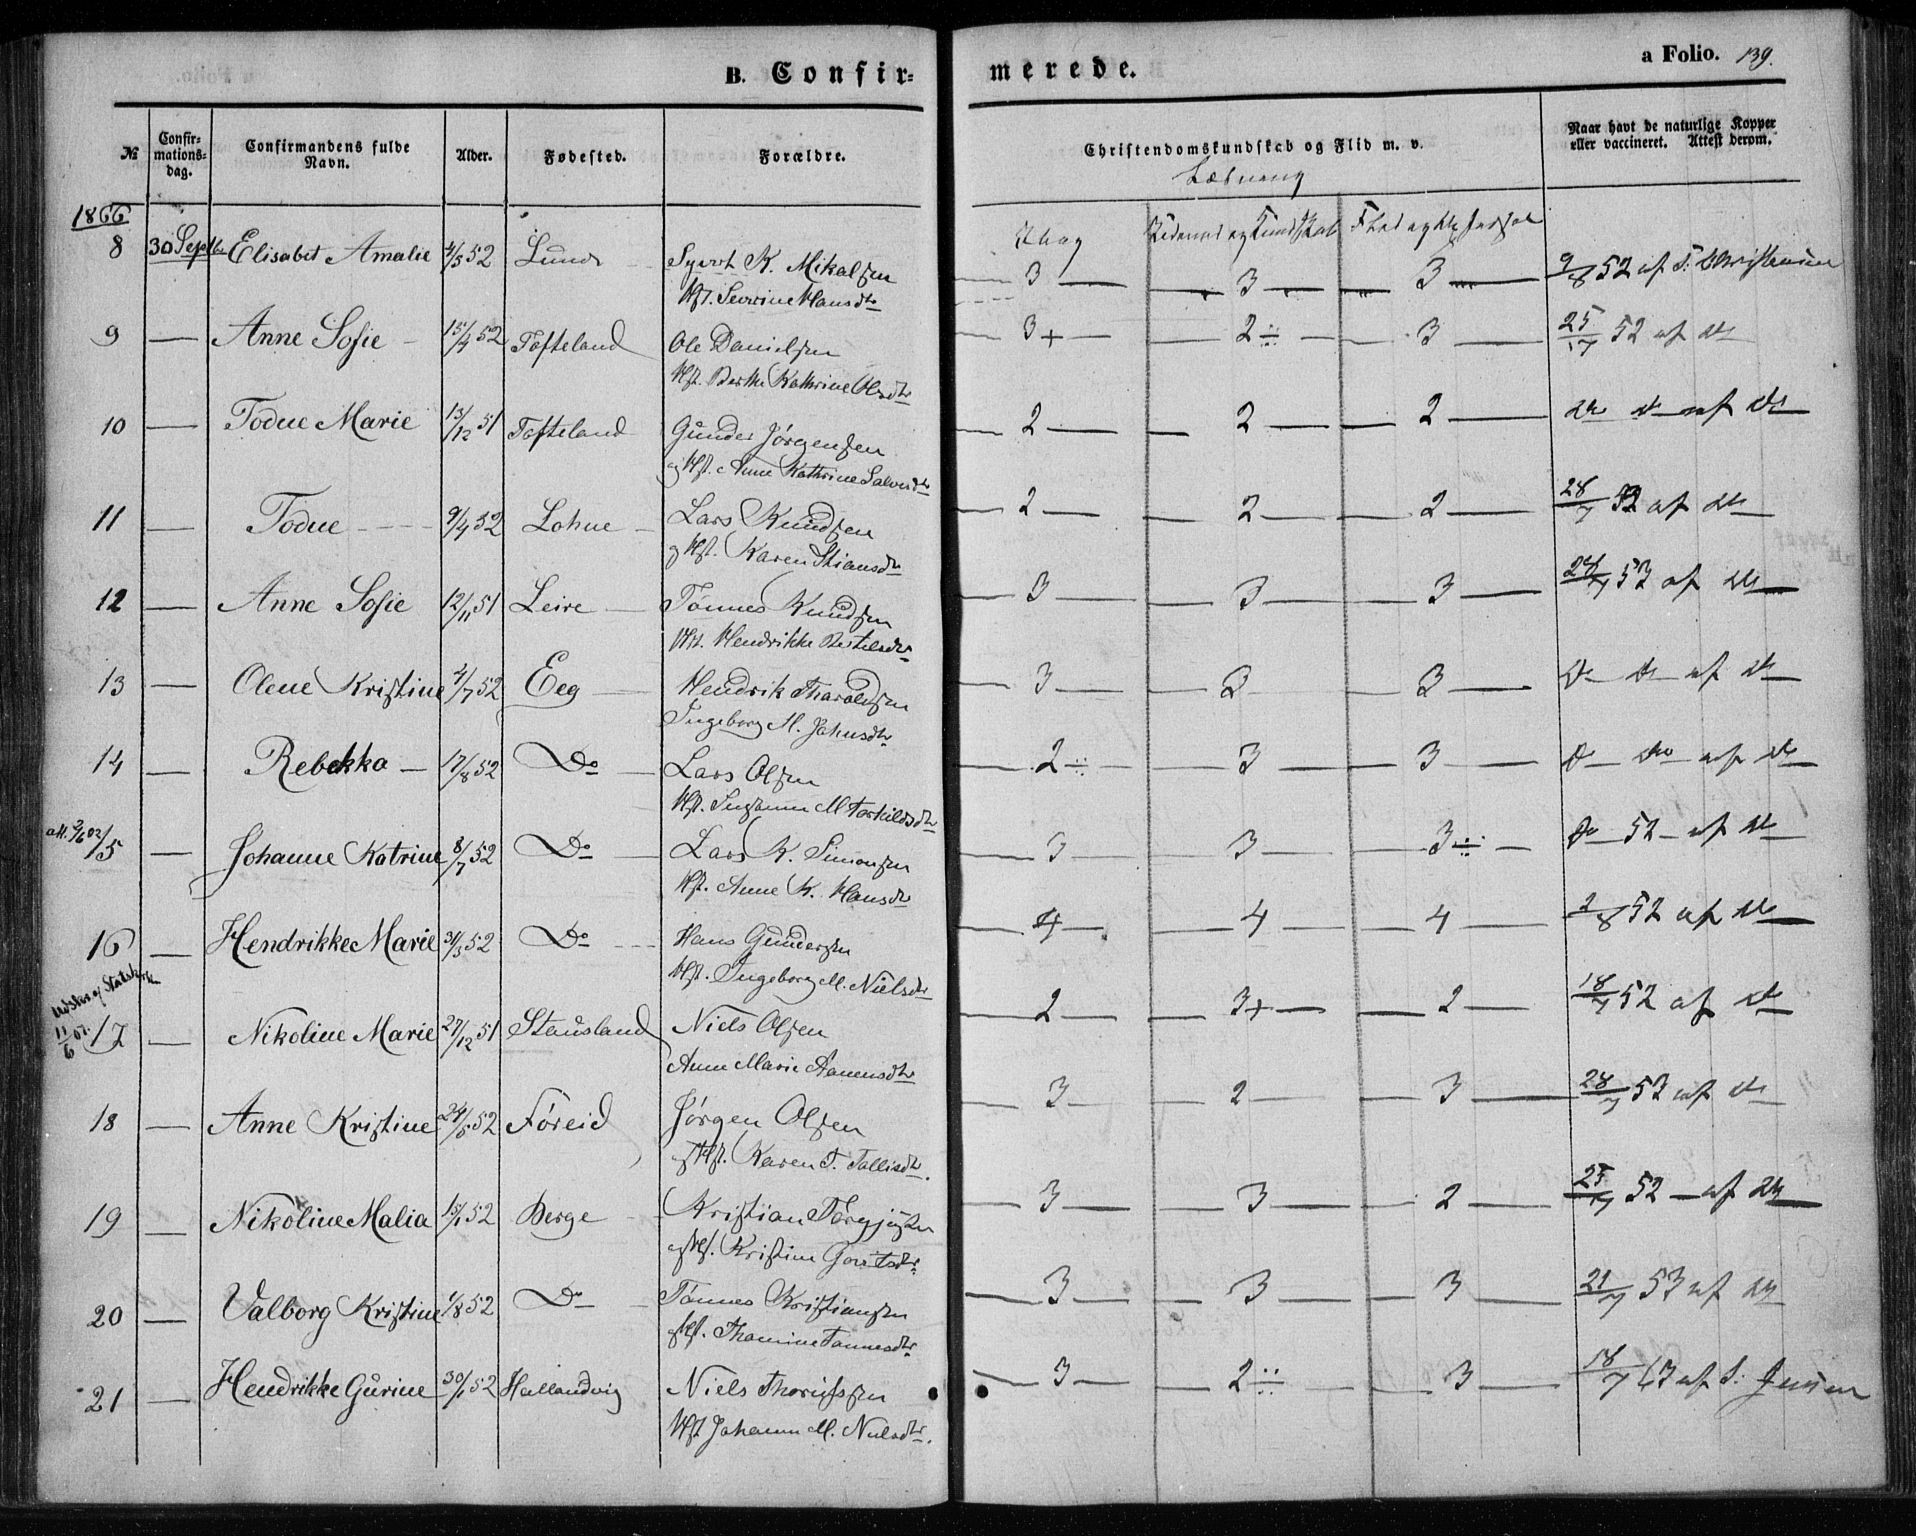 B. Confir-
merede.
a Folio. 139.
№
Confir-
mations-
dag.
Confirmandens fulde
Navn.
Alder.
Fødested.
Forældre.
Christendomskundskab og Flid m. v.
Naar havt de naturlige Kopper
eller vaccineret. Attest derom.
Læsning
1866
8 30 Septbr Elisabet Amalie 4/5 52 Lunde
Syvert K. Mikalsen
Hst. Severine Hansdtr
3 3 3 9/8 52 af S. Christensen
9 — Anne Sofie 15/4 52 Tofteland Ole Danielsen
Hst. Berthe Kathrine Olsdtr
3+ 2÷ 3 25/7 52 af do
10 — Todne Marie 13/12 51 Tofteland Gunder Jørgensen
og Hst. Anne Kathrine Salvesdtr
2 2 2 do do af do
11 — Todne 9/4 52 Lohne Lars Knudsen
og Hst. Karen Stiansdtr
2 2 2 28/7 52 af do
12 — Anne Sofie 12/11 51 Leire Tønnes Knudsen
Hst. Hendrikke Bertelsdtr
3 3 3 28/7 53 af do
13 — Olene Kristine 4/7 52 Eeg Hendrik Tharaldsen
Ingeborg M. Jahnsdtr
3 3 3 do do af do
14 — Rebekka 17/8 52 Do Lars Olsen
Hst. Susanne M Torkildsdtr
2÷ 3 3 do do af do
att. 2/6 02
15 — Johanne Katrine 8/7 52 Do Lars K. Simonsen
Hst. Anne K. Hansdtr
3 3 3÷ do 52 af do
16 — Hendrikke Marie 31/3 52 Do Hans Gundersen
Hst. Ingeborg M. Nielsdtr
4 4 4 2/8 52 af do
Udstr. af Statskirk
11/6 07
17 — Nikoline Marie 27/12 51 Stausland Niels Olsen
Anne Marie Aanensdtr
2 3+ 2 18/7 52 af do
18 — Anne Kristine 24/5 52 Føreid Jørgen Olsen
og Hst. Karen T. Tallisdtr.
3 2 3 28/7 53 af do
19 — Nikoline Malia 15/1 52 Berge Kristian Tørgjusen
og Hst. Kristine
3 3 2 25/7 52 af do
20 — Valborg Kristine 1/8 52 Do Tønnes Kristiansen
Hst. Thomine Tønnesdtr
3 3 3 21/7 53 af do
21 — Hendrikke Gurine 30/1 52 Hallandvig Niels
Hst Johanne M. Nielsdtr.
3 2÷ 3 18/7 63 af S. Jensen